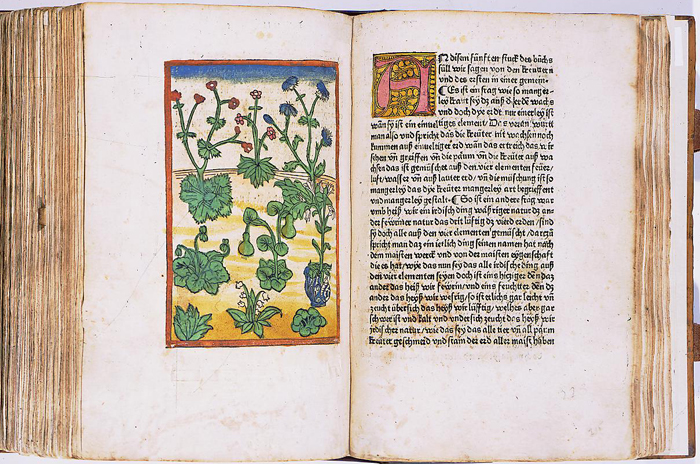 An disem fünften stuck des bůchs
süll wir sagen von den kreutern
und des ersten in einer gemein⸗
¶ Es ist ein frag wie so manger⸗
ley kraut sey dz auß d̕ erde wachs
und doch dye erdt nur einerley ist
wañ sy ist ein einueltiges element/ Das veran wurt
man also und spricht das die kreüter nit wachsen noch
kummen auß einueltiger erd wan das ertreich das wir
sehen vñ greiffen vñ die päum vñ die kreüter auß wa
chsen das ist gemüschet auß den vier elementen feüer/
luft/ wasser vñ auß lauter erd/ vñ die müschung ist so
mangerley das dye kreüter mangerley art begreiffent
und mangerley gestalt⸗ ¶ So ist ein andee frag war
umb heyß wir ein irdisch ding wäßriger natur dz an
der feüriner natur das drit lüftig dz vierd erden/ sind
sy doch alle auß den vier elementen gemüscht/ dartzů
spricht man daz ein ieclich ding seinen namen hat nach
dem maisten werck und von der maisten eygenschaft
die es hat/ wye das nun sey das alle irdische ding auß
den vier elementen seyen doch ist eins hitziger deñ daz
ander das heyß wir feürin/ und eins feuchter deñ dz
ander das heyß wir wesrig/ so ist etlichs gar leicht vñ
zeücht übersich das heyß wir lüfftig/ welhes aber gar
schwer ist und kalt und undersich zeücht das heyß wir
irdischer natur/ wie das sey das alle tier vñ all päum
kreüter geschmeid und stain der erd aller maist haben